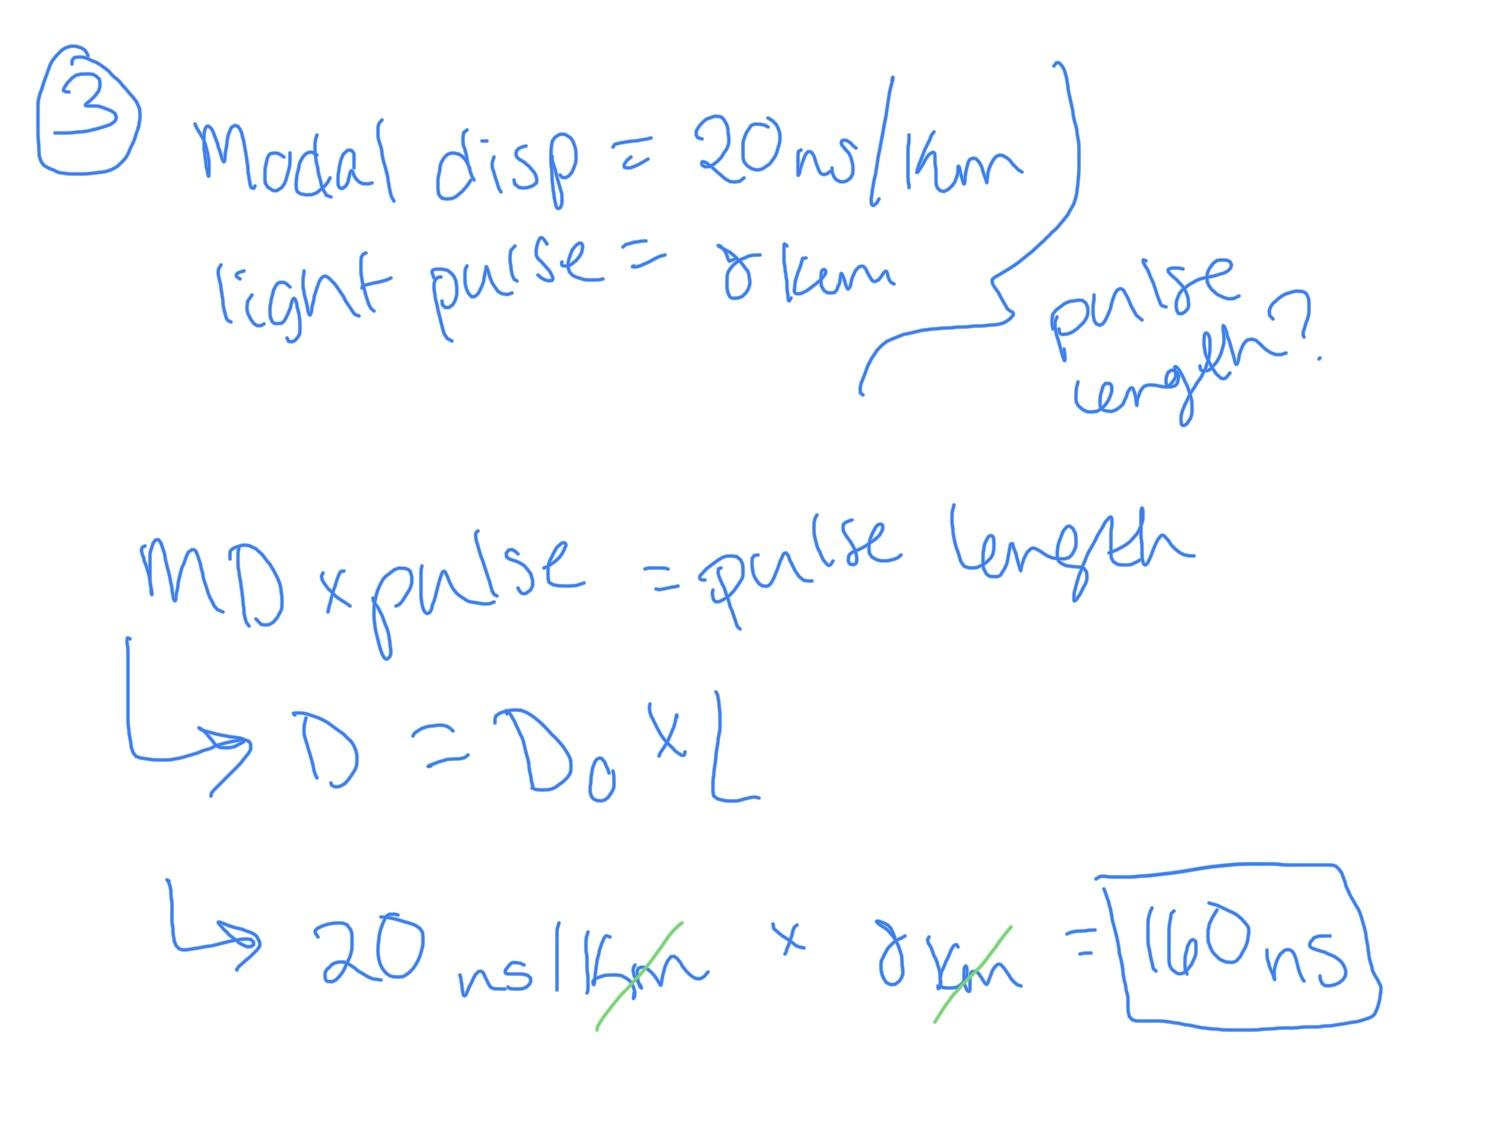 3
Modal disp = 20 ns/km
light pulse = 8 km
pulse
length?
MD x pulse = pulse length
↳ D = D₀ x L
↳ 20 ns/km x 8 km = 160 ns